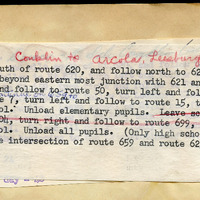 Conklin to Arcola, Leesburg
uth of route 620, and follow north to 62
beyond eastern most junction with 621 an
nd follow to route 50, turn left and fol
e 7, turn left and follow to route 15, t
ol. Unload elementary pupils. Leave sc
turn right and follow to route 699,
ol. Unload all pupils. (Only high scho
e intersection of route 659 and route 62
only